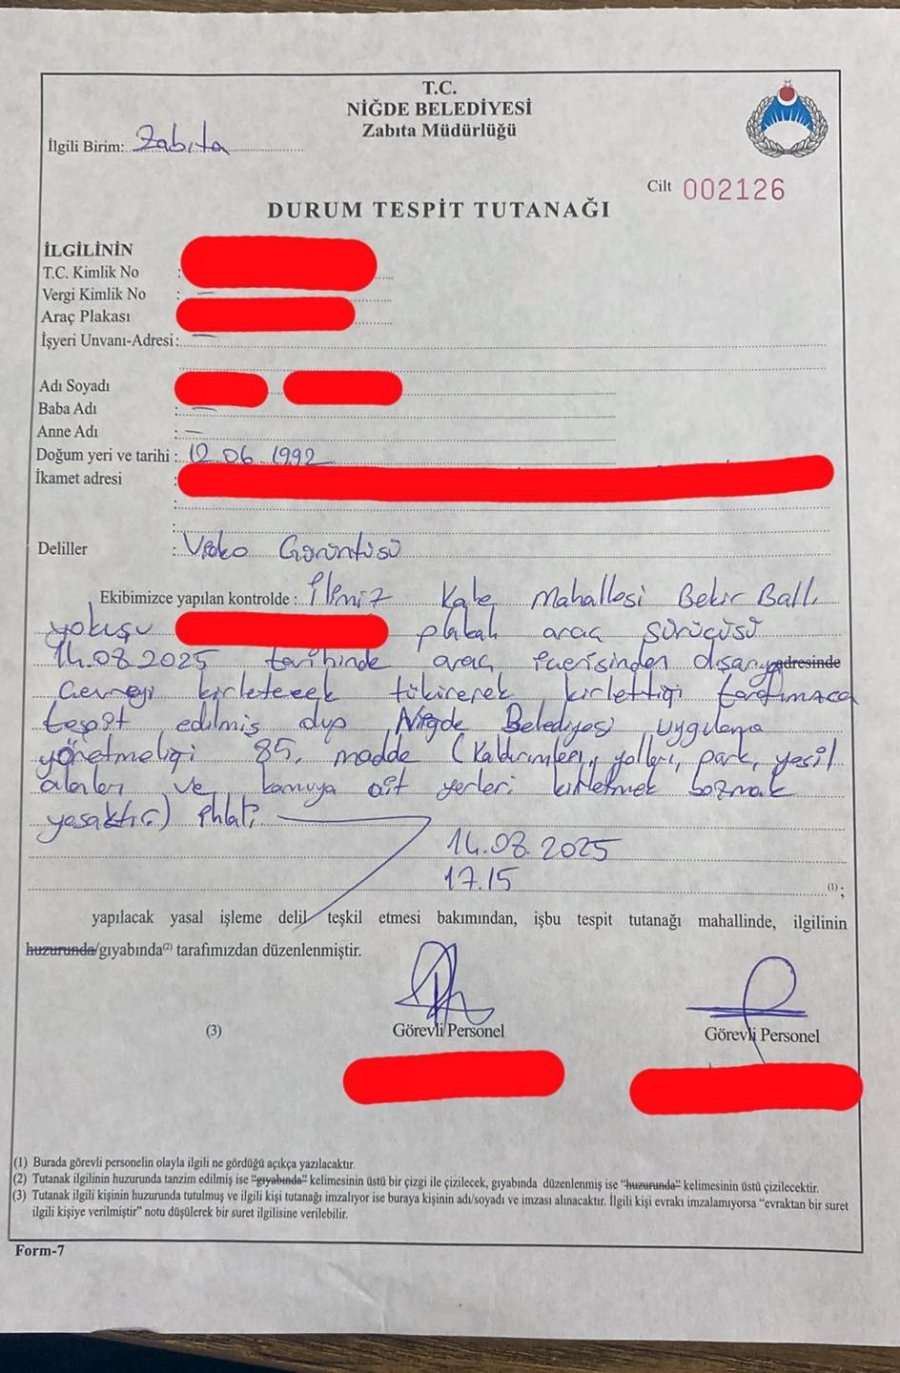 T.C.
NİĞDE BELEDİYESİ
Zabıta Müdürlüğü
İlgili Birim: Zabıta
Cilt 002126
DURUM TESPİT TUTANAĞI
İLGİLİNİN
T.C. Kimlik No :
Vergi Kimlik No : —
Araç Plakası
İşyeri Unvanı-Adresi: —
Adı Soyadı
Baba Adı : —
Anne Adı : —
Doğum yeri ve tarihi : 12.06.1992
İkamet adresi :
Deliller : Video Görüntüsü
Ekibimizce yapılan kontrolde : İlimiz Kale Mahallesi Bekir Ballı
yokuşu plakalı araç sürücüsü
14.08.2025 tarihinde araç içerisinden dışarıya adresinde
Çevreyi kirletecek tükürerek kirlettiği tarafımızca
tespit edilmiş olup Niğde Belediyesi uygulama
yönetmeliği 85. madde (Kaldırımları, yolları, park, yeşil
alanları ve kamuya ait yerleri kirletmek bozmak
yasaktır.) ihlali
14.08.2025
17.15
(1) ;
yapılacak yasal işleme delil teşkil etmesi bakımından, işbu tespit tutanağı mahallinde, ilgilinin
huzurunda/gıyabında(2) tarafımızdan düzenlenmiştir.
(3) Görevli Personel Görevli Personel
(1) Burada görevli personelin olayla ilgili ne gördüğü açıkça yazılacaktır.
(2) Tutanak ilgilinin huzurunda tanzim edilmiş ise "gıyabında" kelimesinin üstü bir çizgi ile çizilecek, gıyabında düzenlenmiş ise "huzurunda" kelimesinin üstü çizilecektir.
(3) Tutanak ilgili kişinin huzurunda tutulmuş ve ilgili kişi tutanağı imzalıyor ise buraya kişinin adı/soyadı ve imzası alınacaktır. İlgili kişi evrakı imzalamıyorsa "evraktan bir suret
ilgili kişiye verilmiştir" notu düşülerek bir suret ilgilisine verilebilir.
Form-7